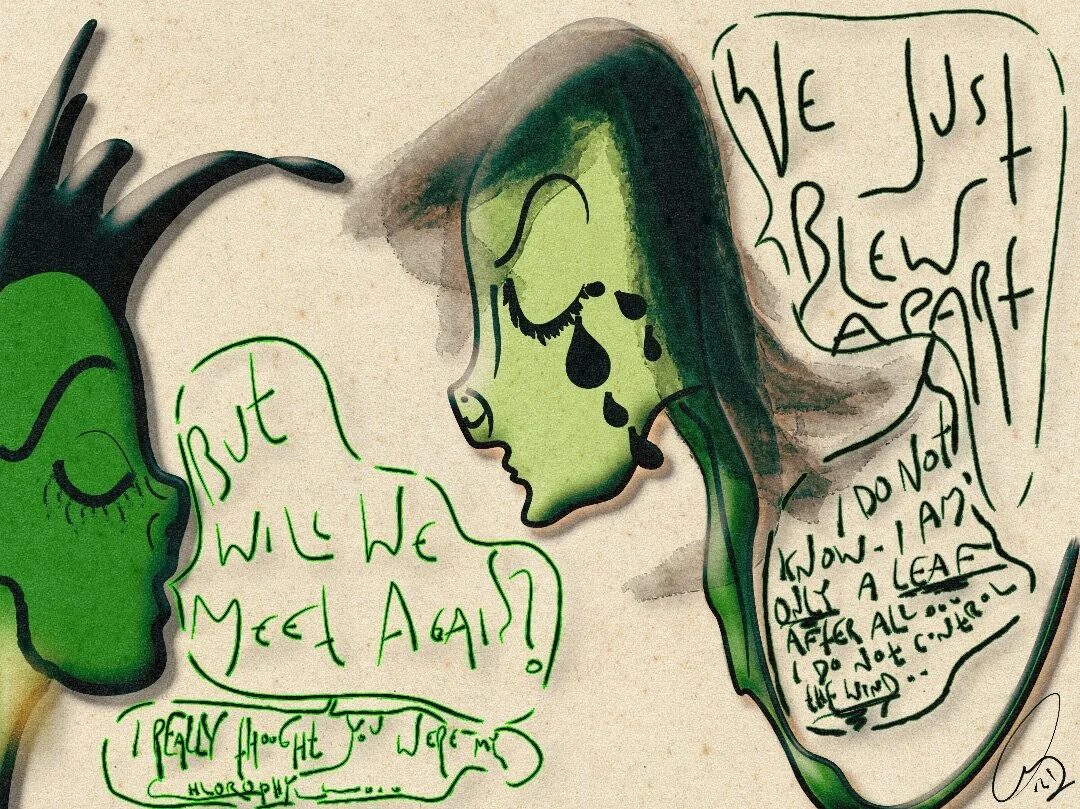 WE JUST
BLEW
APART
BUT
WILL WE
MEET AGAIN?
I DO NOT
KNOW - I AM
ONLY A LEAF
AFTER ALL ....
I DO NOT CONTROL
THE WIND..
I REALLY THOUGHT YOU WERE MY
CHLOROPHYLL......